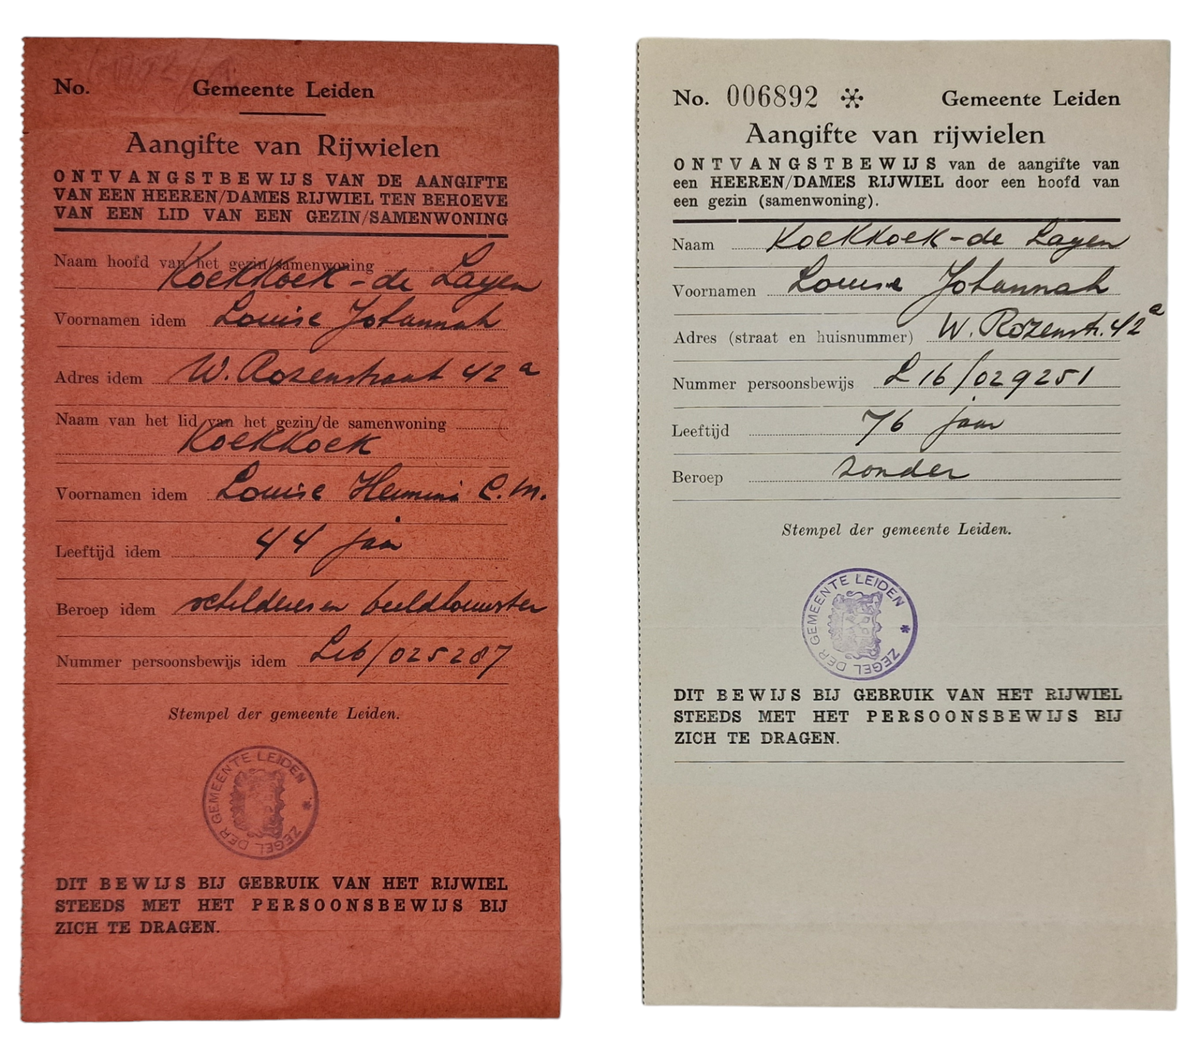 No.
Gemeente Leiden
Aangifte van Rijwielen
ONTVANGSTBEWIJS VAN DE AANGIFTE
VAN EEN HEEREN/DAMES RIJWIEL TEN BEHOEVE
VAN EEN LID VAN EEN GEZIN/SAMENWONING
Naam hoofd van het gezin/samenwoning
Koekkoek-de Layen
Voornamen idem Louise Johannah
Adres idem W. Rozenstraat 42a
Naam van het lid van het gezin/de samenwoning
Koekkoek
Voornamen idem Louise C. M.
Leeftijd idem 44 jaar
Beroep idem schilderes en beeldhouwster
Nummer persoonsbewijs idem L16/025287
Stempel der gemeente Leiden.
ZEGEL DER GEMEENTE LEIDEN *
DIT BEWIJS BIJ GEBRUIK VAN HET RIJWIEL
STEEDS MET HET PERSOONSBEWIJS BIJ
ZICH TE DRAGEN.
No. 006892 * Gemeente Leiden
Aangifte van rijwielen
ONTVANGSTBEWIJS van de aangifte van
een HEEREN/DAMES RIJWIEL door een hoofd van
een gezin (samenwoning).
Naam Koekkoek-de Layen
Voornamen Louise Johannah
Adres (straat en huisnummer) W. Rozenstr. 42a
Nummer persoonsbewijs L 16/029251
Leeftijd 76 jaar
Beroep zonder
Stempel der gemeente Leiden.
ZEGEL DER GEMEENTE LEIDEN *
DIT BEWIJS BIJ GEBRUIK VAN HET RIJWIEL
STEEDS MET HET PERSOONSBEWIJS BIJ
ZICH TE DRAGEN.